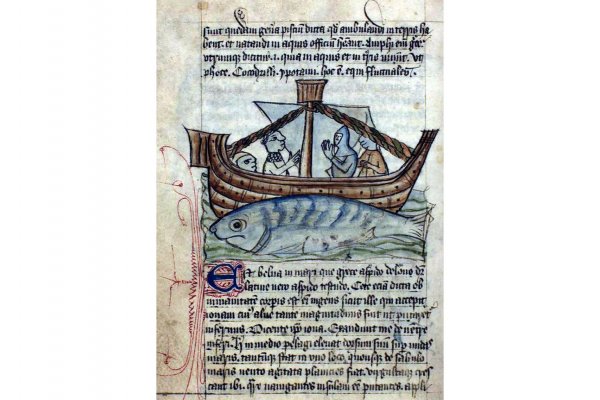 sunt quedam gen̄a pisciū dicta qd̄ ambulandi in terris ha
bent. et natandi in aquis officiū hēant. Amphi em̄ gre
utrumque dicitur .i. quia in aquis et in t̄ris uiuūt. vt
phoce. Cocodrilli. ypotami. hoc ē. equi fluctuales.
Est belua in mari que grece aspido delone dr̄
latine uero aspido testudo. Cete eciā dicta ob
inmanitatē corporis est em̄ ingens sicut ille qui accepit
ionam cuiꝰ aluꝰ tante magnitudinis fuit ut putaret̄
infernus. Dicente ip̄o iona. Exaudiuit me de uētre
inferi. H in medio pelagi eleuat dorsum suū sup̄ undas
maris. tantūque stat in vno loco, quousque de sabulo
maris uento agitata planicies fiat. virgultaque cres
cant ibi. nauigantes insulam eē putantes. appli